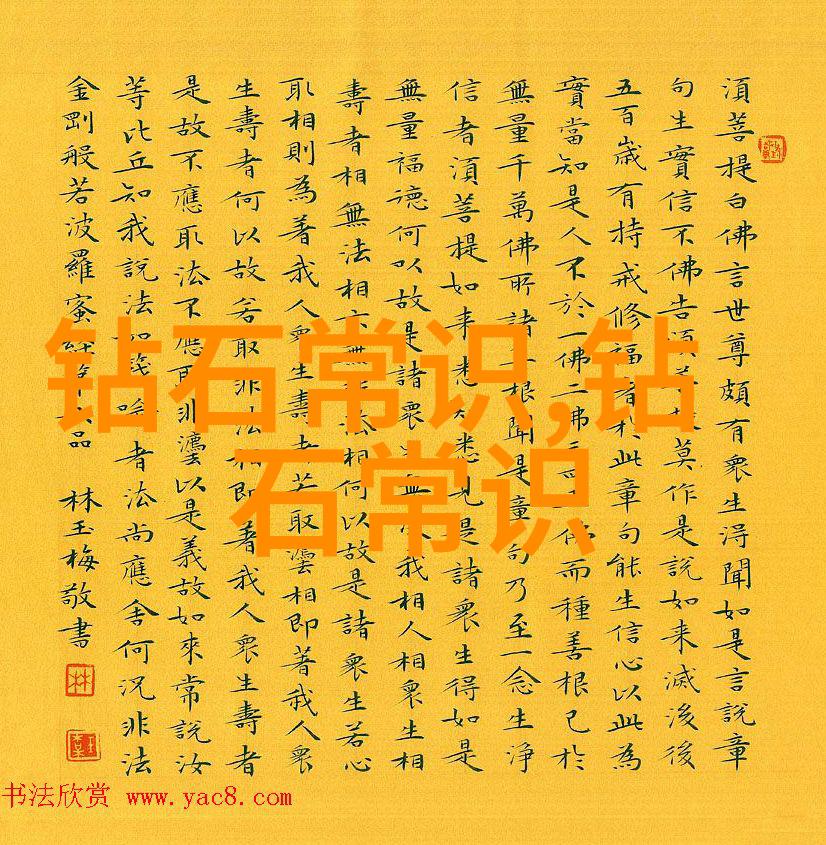 須菩提白佛言世尊頗有衆生得聞如是言說章
句生實信不佛告須莫作是說如来滅後後
五百歲有持戒修福者於此章句能生信心以此為
實當知是人不於一佛二佛佛而種善根已於
無量千萬佛所諸根聞是章句乃至一念生淨
信者須菩提如来悉知悉見是諸衆生得如是
無量福德何以故是諸衆生無我相人相衆生相
壽者相無法相亦無法相何以故是諸衆生若心
取相則為著我人衆生壽者若取法相即著我人衆
生壽者何以故若取非法相即著我人衆生壽者
是故不應取法不應取非法以是義故如來常說汝
等比丘知我說法如筏喻者法尚應舍何況非法
金剛般若波羅蜜經品 林玉梅敬書
林
钻石常识,钻
石常识
书法欣赏 www.yac8.com